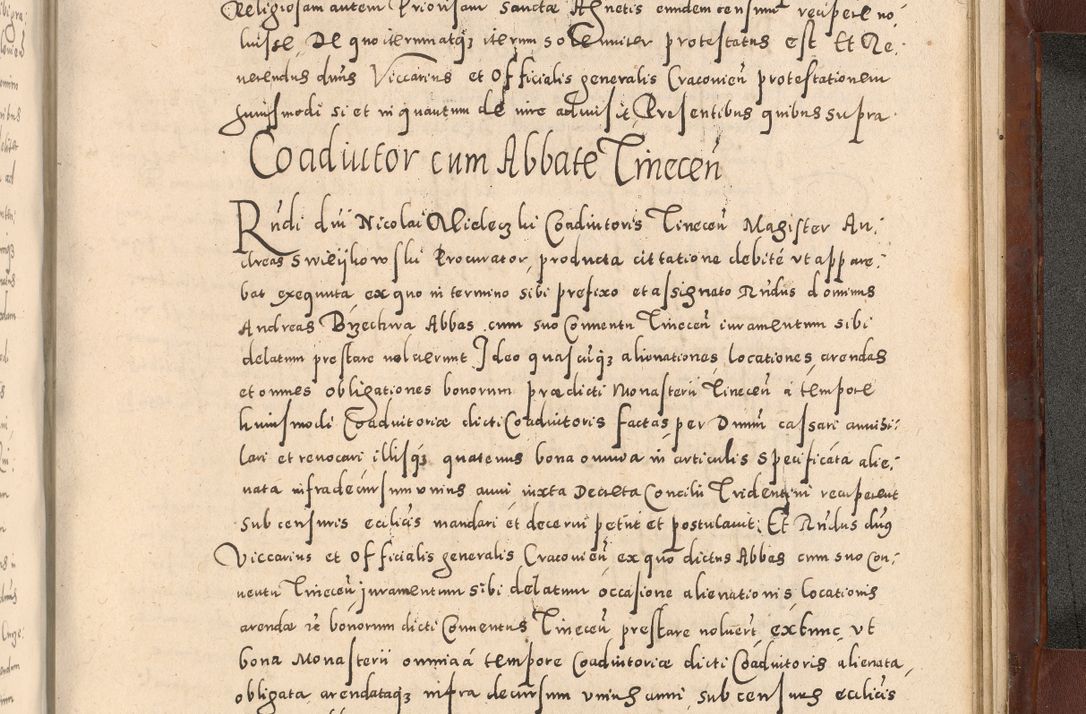 Religiosam autem Priorisam Sanctæ Agnetis eundem censum recipere no-
luisse, De quo iterum atq3 iterum solenniter protestatus est Et Re-
uerendus dnus Viccarius et Officialis generalis Cracouien protestationem
huiusmodi si et in quantum de iure admisit Presentibus quibus supra.
Coadiutor cum Abbate Tinecen
Rndi dni Nicolai Mieleczki Coadiutoris Tinecen Magister An-
dreas Swieijkowski Procurator, producta cittatione debité vt appare-
bat exequuta, ex quo in termino sibi prefixo et assignato Rndus dominus
Andreas Brzechwa Abbas cum suo Conuentu Tinecen iuramentum sibi
delatum prestare noluerunt Ideo quascuq3 alienationes, locationes, arendas
et omnes obligationes bonorum prædicti Monasterii Tinecen á tempore
huiusmodi Coadiutoriæ dicti Coadiutoris factas per Dnum cassari annihi-
lari et reuocari illisq3 quatenus bona omnia in articulis specificáta alie-
nata infra decursum vnius anni iuxta Decreta Concilii Tridentini recuperent
sub censuris ecclicis mandari et decerni petiit et postulauit. Et Rndus dnus
Viccarius et Officialis generalis Cracouien, ex quo dictus Abbas cum suo Con-
uentu Tinecen juramentum sibi delatum occasione alienationis locationis
arendæ rè bonorum dicti Conuentus Tinecen prestare noluert, extunc, vt
bona Monasterii omnia á tempore Coadiutoriæ dicti Coadiutoris alienata,
obligata arendataq3 infra decursum vnius anni, sub censuris ecclicis